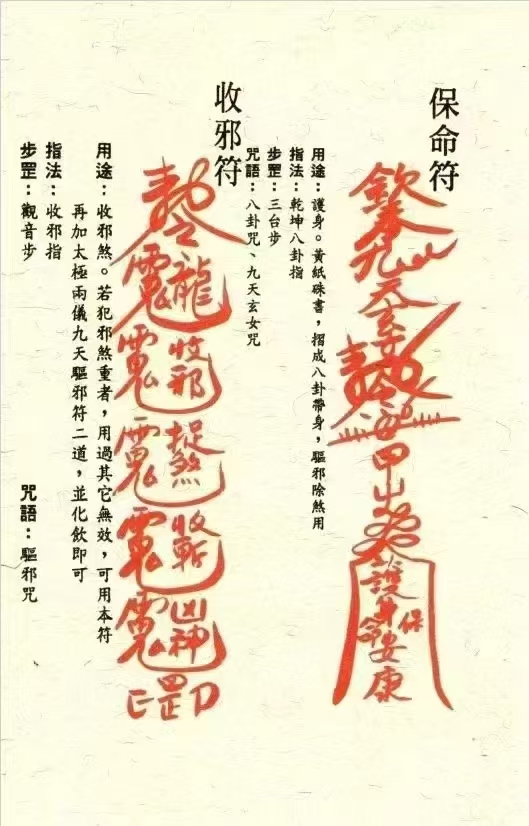 保命符
護身保命安康
用途：護身。黃紙硃書，摺成八卦帶身，驅邪除煞用
指法：乾坤八卦指
步罡：三台步
咒語：八卦咒、九天玄女咒
收邪符
龍
收邪
捉煞
收斬
凶神
罡印
用途：收邪煞。若犯邪煞重者，用過其它無效，可用本符
再加太極兩儀九天驅邪符二道，並化飲即可
指法：收邪指
步罡：觀音步
咒語：驅邪咒